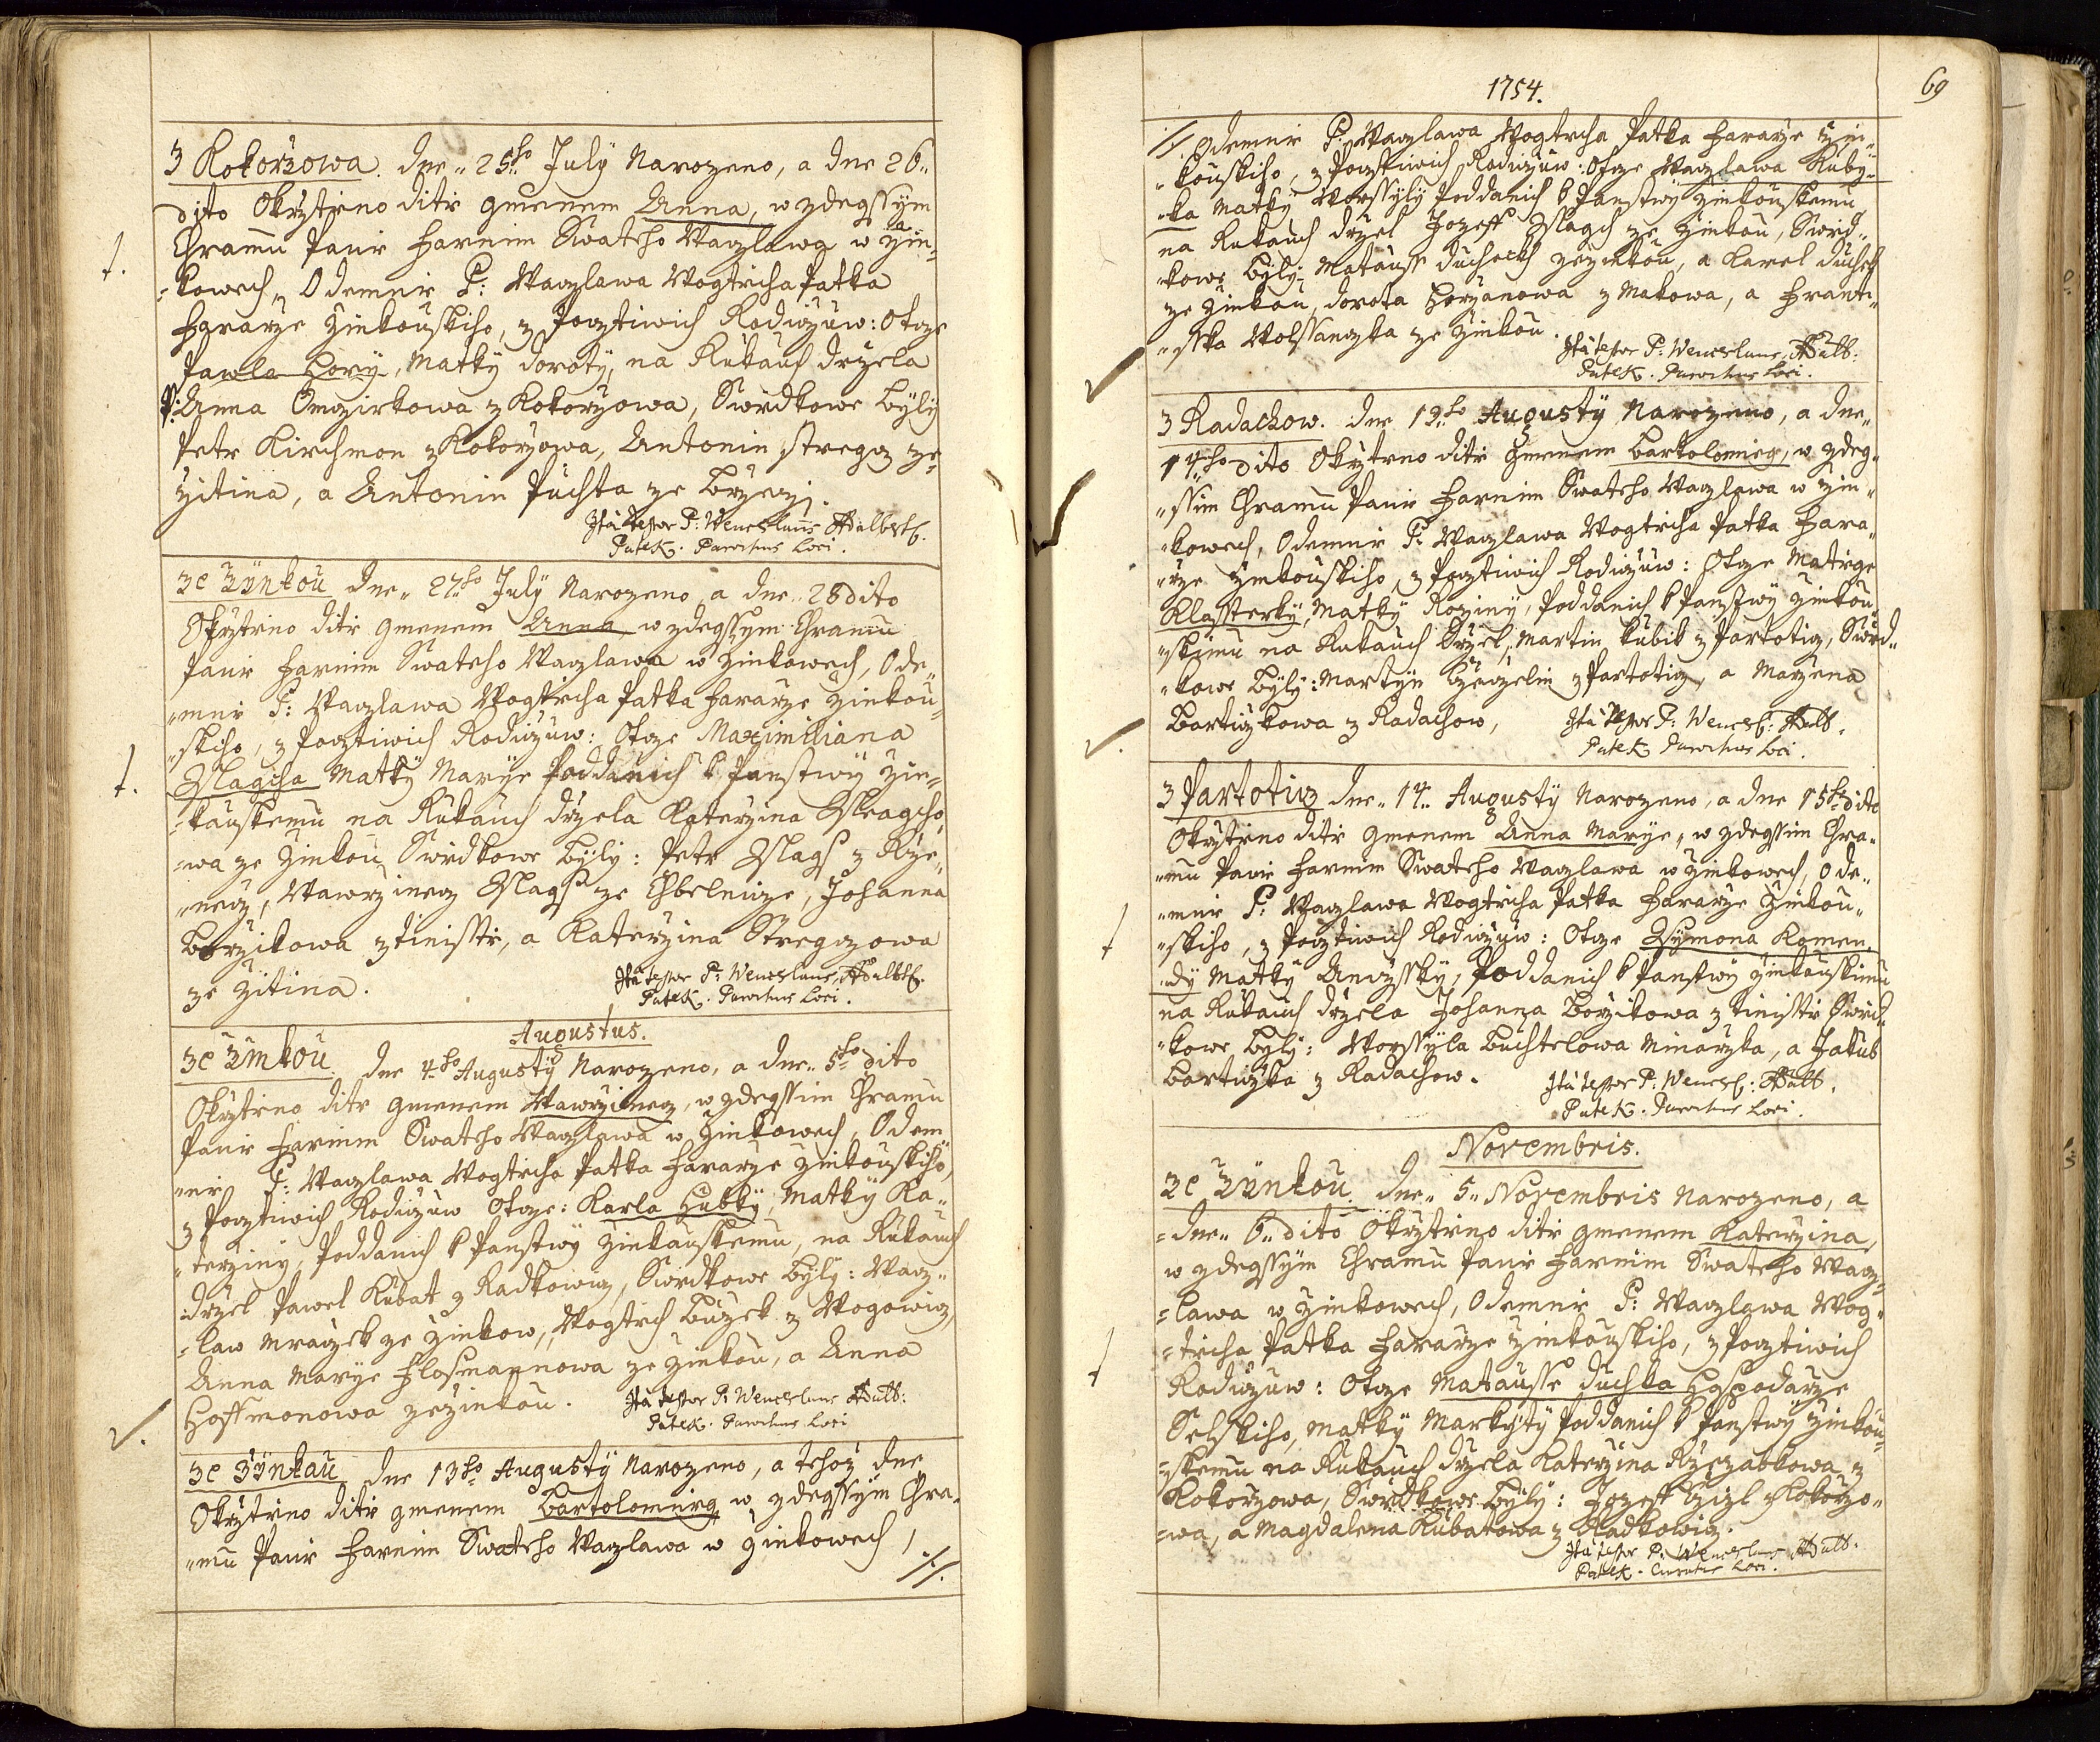 3 Kokoržowa. dne „ 25ho July Narozeno, a dne 26„
dito Okrztieno ditie gmenem Anna, w zdegssym
Chramu Panie Farnim Swateho Waczlawa w Žin-
-kowech, Odemnie P: Waczlawa Wogtiecha Patka
Fararze Žinkouskiho, z Pocztiwich Rodiczuw: Otcze
Pawla Hory, Matky doroty, na Rukauch držela
P: Anna z Kokoržowa, Swiedkowe byly
Petr Kirchmon z Kokoržowa, Antonin stregcz ze
Žitina, a Antonin Puchta ze Brzezj.
Ita testor P: Wenceslaus Adalbertg.
Patek. Parochus Loci.
3e Žÿnkou dne „ 27ho July Narozeno a dne „ 28 dito
Okrztieno ditie gmenem Anna w zdegssym Chramu
Panie Farnim Swateho Waczlawa w Žinkowech, Ode„
„mnie P: Waczlawa Wogtiecha Patka Fararze Žinkou„
„skiho, z Pocztiwich Rodiczuw: Otcze Maximiliana
Wlagcha Matky Marye Poddanich k Panstwy Žin-
-kauskemu na Rukauch držela Katerzina
-wa ze Žinkou Swiedkowe byly: Petr Wlagh z Rže„
„necz, Wawrzinecz Wlagh ze Chbelnicze, Johanna
Boržikowa z tinisstie, a Katerzina Stregczowa
ze Žitina.
Ita testor P: Wenceslaus Adalbtg.
Patek. Parochus Loci.
Augustus.
3e Žinkou dne 4ho Augusty Narozeno, a dne „ 5ho dito
Okrztieno ditie gmenem Wawrzinecz, w zdegssim Chramu
Panie Farnim Swateho Waczlawa w Žinkowech, Odem
„nie P: Waczlawa Wogtiecha Patka Fararze Žinkouskiho,
z Pocztiwich Rodiczuw Otcze: Karla Hubky, Matky Ka„
„terziny, Poddanich k Panstwy Žinkauskemu, na Rukauch
držel Pawel Kubat z Radkowicz, Swiedkowe byly: Wacz„
-law Mraczek ze Žinkow, Wogtiech Buzek z Wogowicz,
Anna Marye Flosmannowa ze Žinkou, a Anna
Hoffmonowa ze Žinkou.
Ita testor P: Wenceslaus Adalb:
Patek. Parochus Loci
3e Žÿnkau dne 13ho Augusty Narozeno, a tehož dne
Okrztieno ditie gmenem Bartolomieg w zdegssym Chra-
„mu Panie Farnim Swateho Waczlawa w Žinkowech,
·//·
1754.
69
·//· Odemnie P: Waczlawa Wogtiecha Patka Fararze Žin„
„kouskiho, z Pocztiwich Rodiczuw: Otcze Waczlawa Kuby„
„ka Matky Worssyly Poddanich k Panstwy Žinkouskemu
na Rukauch držel Jozeff Wlagch ze Žinkou, Swied„
„kowe byly: Matauss duchech ze Žinkou, a Karel duchek
ze Žinkou, dorota Horzanowa z Makowa, a Franti„
„sska Wolssanczka ze Žinkou.
Ita testor P: Wenceslaus Adalb:
Patek. Parochus Loci.
3 Radachow. dne 13ho Augusty Narozeno, a dne„
14ho dito Okrztieno ditie gmenem Bartolomieg, w zdeg„
„ssim Chramu Panie Farnim Swateho Waczlawa w Žin„
„kowech, Odemnie P: Waczlawa Wogtiecha Patka Fara„
„rže Žinkouskiho, z Pocztiwich Rodiczuw: Otcze Matiege
Klassterky, Matky Roziny, Poddanich k Panstwy Žinkou„
„skimu na Rukauch držel, Martin Kubik z Partoticz, Swied„
„kowe byly: Martÿn z Partoticz, a Maržena
Barticzkowa z Radachow,
Ita testor P: Wencesl: Adalb.
Patek Parochus Loci.
3 Partoticz dne „ 14„ Augusty Narozeno, a dne 15ho dito
Okrztieno ditie gmenem Anna Marye, w zdegssim Chra„
„mu Panie Farnim Swateho Waczlawa w Žinkowech, Ode„
„mnie P: Waczlawa Wogtiecha Patka Fararze Žinkou„
„skiho, z Pocztiwich Rodiczuw: Otcze Ssymona Komen„
„dy Matky Anyžsky, Poddanich k Panstwy Žinkauskimu
na Rukauch držela Johanna Boržikowa z tinisstie Swied„
„kowe byly: Worssyla Buchtelowa Minaržka, a Jakub
Barticzka z Radachow.
Ita testor P: Wencesl: Adalb.
Patek. Parochus Loci.
Novembris.
3e Žÿnkou. dne „ 5„ Novembris Narozeno, a
-dne „ 6„ dito Okrztieno ditie gmenem Katerzina,
w zdegssym Chramu Panie Farnim Swateho Wacz-
-lawa w Žinkowech, Odemnie P: Waczlawa Wog„
-tiecha Patka Fararze Žinkouskiho, z Pocztiwich
Rodiczuw: Otcze Matausse duchka Hospodarže
Selskiho, Matky Markyty Poddanich k Panstwy Žinkou-
-skemu na Rukauch držela Katerzina z
Kokoržowa, Swiedkowe byly: Jozeff z Kokoržo„
-wa, a Magdalena Kubatowa z Radkowicz.
Ita testor P: Wenceslaus Adalb.
Patek. Curatus Loci.